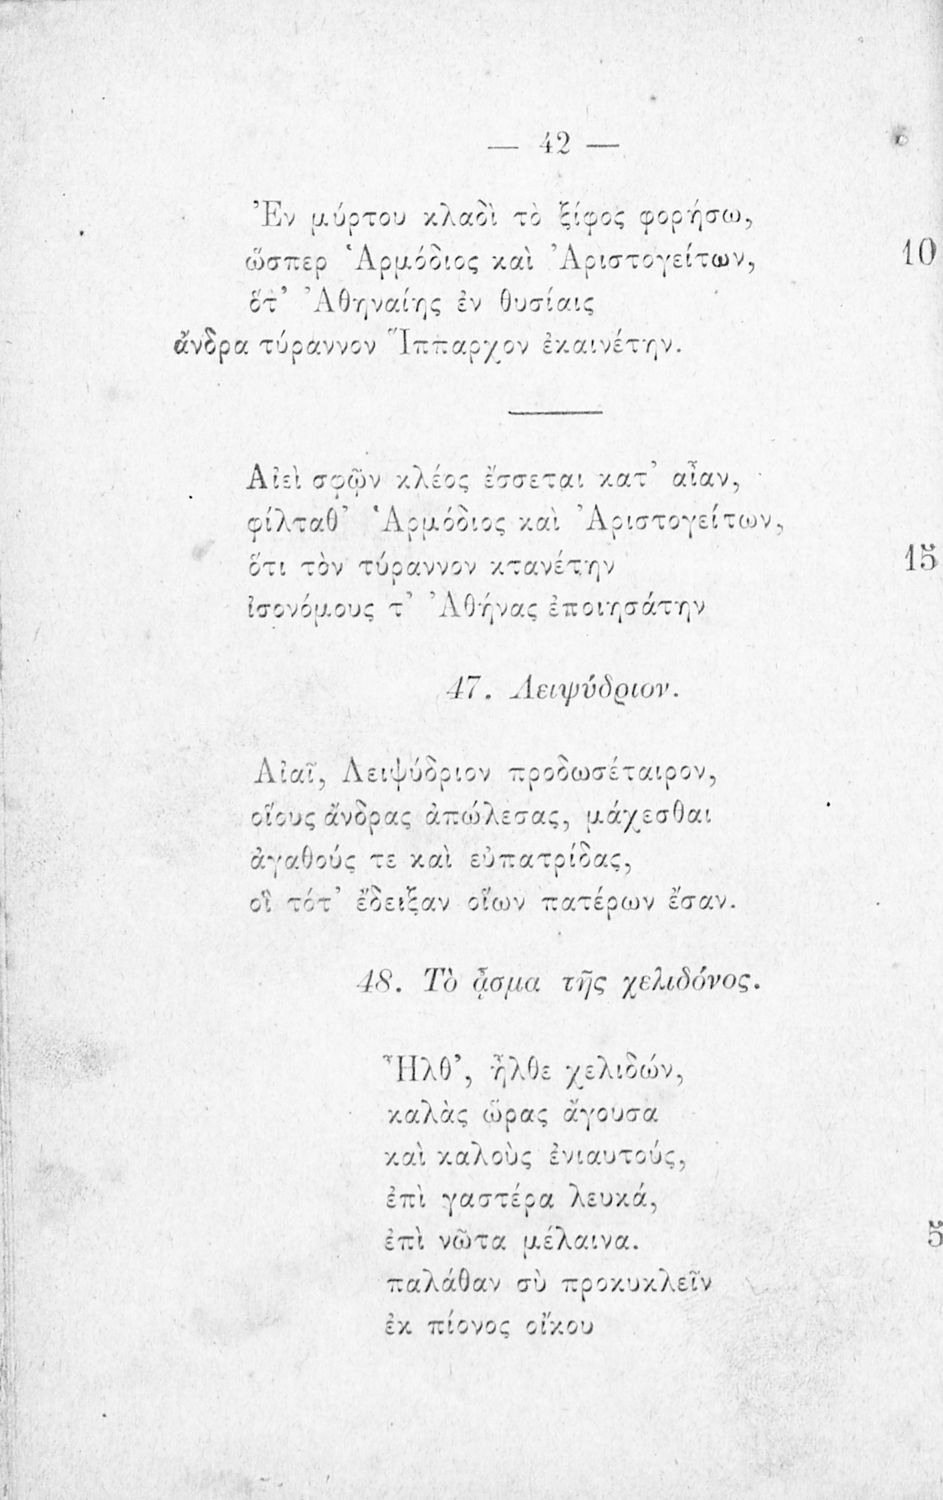 — 42 —
Ἐν μύρτου κλαδὶ τὸ ξίφος φορήσω,
ὥσπερ Ἁρμόδιος καὶ Ἀριστογείτων, 10
ὅτ' Ἀθηναίης ἐν θυσίαις
ἄνδρα τύραννον Ἵππαρχον ἐκαινέτην.
Αἰεὶ σφῷν κλέος ἔσσεται κατ' αἶαν,
φίλταθ' Ἁρμόδιος καὶ Ἀριστογείτων,
ὅτι τὸν τύραννον κτανέτην 15
ἰσονόμους τ' Ἀθήνας ἐποιησάτην
47. Λειψύδριον.
Αἰαῖ, Λειψύδριον προδωσέταιρον,
οἵους ἄνδρας ἀπώλεσας, μάχεσθαι
ἀγαθούς τε καὶ εὐπατρίδας,
οἳ τότ' ἔδειξαν οἵων πατέρων ἔσαν.
48. Τὸ ᾆσμα τῆς χελιδόνος.
Ἦλθ', ἦλθε χελιδών,
καλὰς ὥρας ἄγουσα
καὶ καλοὺς ἐνιαυτούς,
ἐπὶ γαστέρα λευκά,
ἐπὶ νῶτα μέλαινα. 5
παλάθαν σὺ προκυκλεῖν
ἐκ πίονος οἴκου